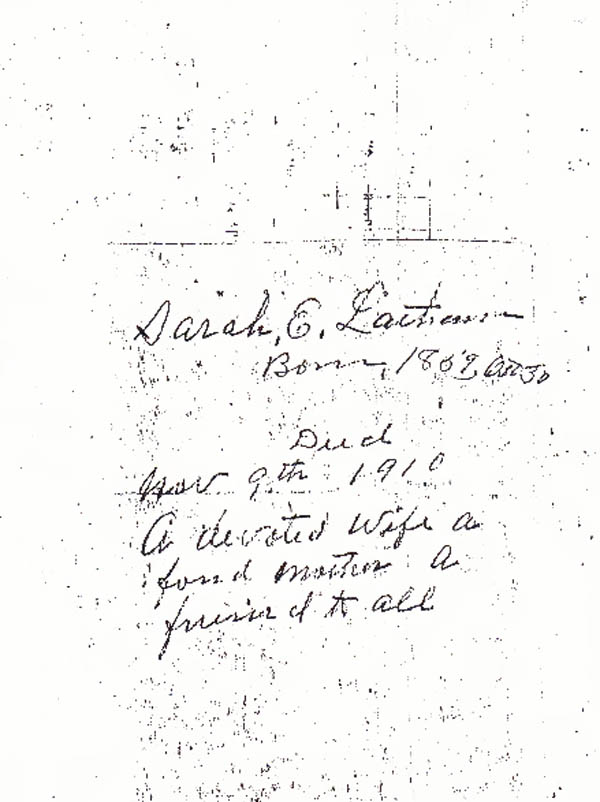 Sarah, E. Latham
Born, 1869, Oct 30
Died
Nov 9th 1910
A devoted wife a
fond mother A
friend to all